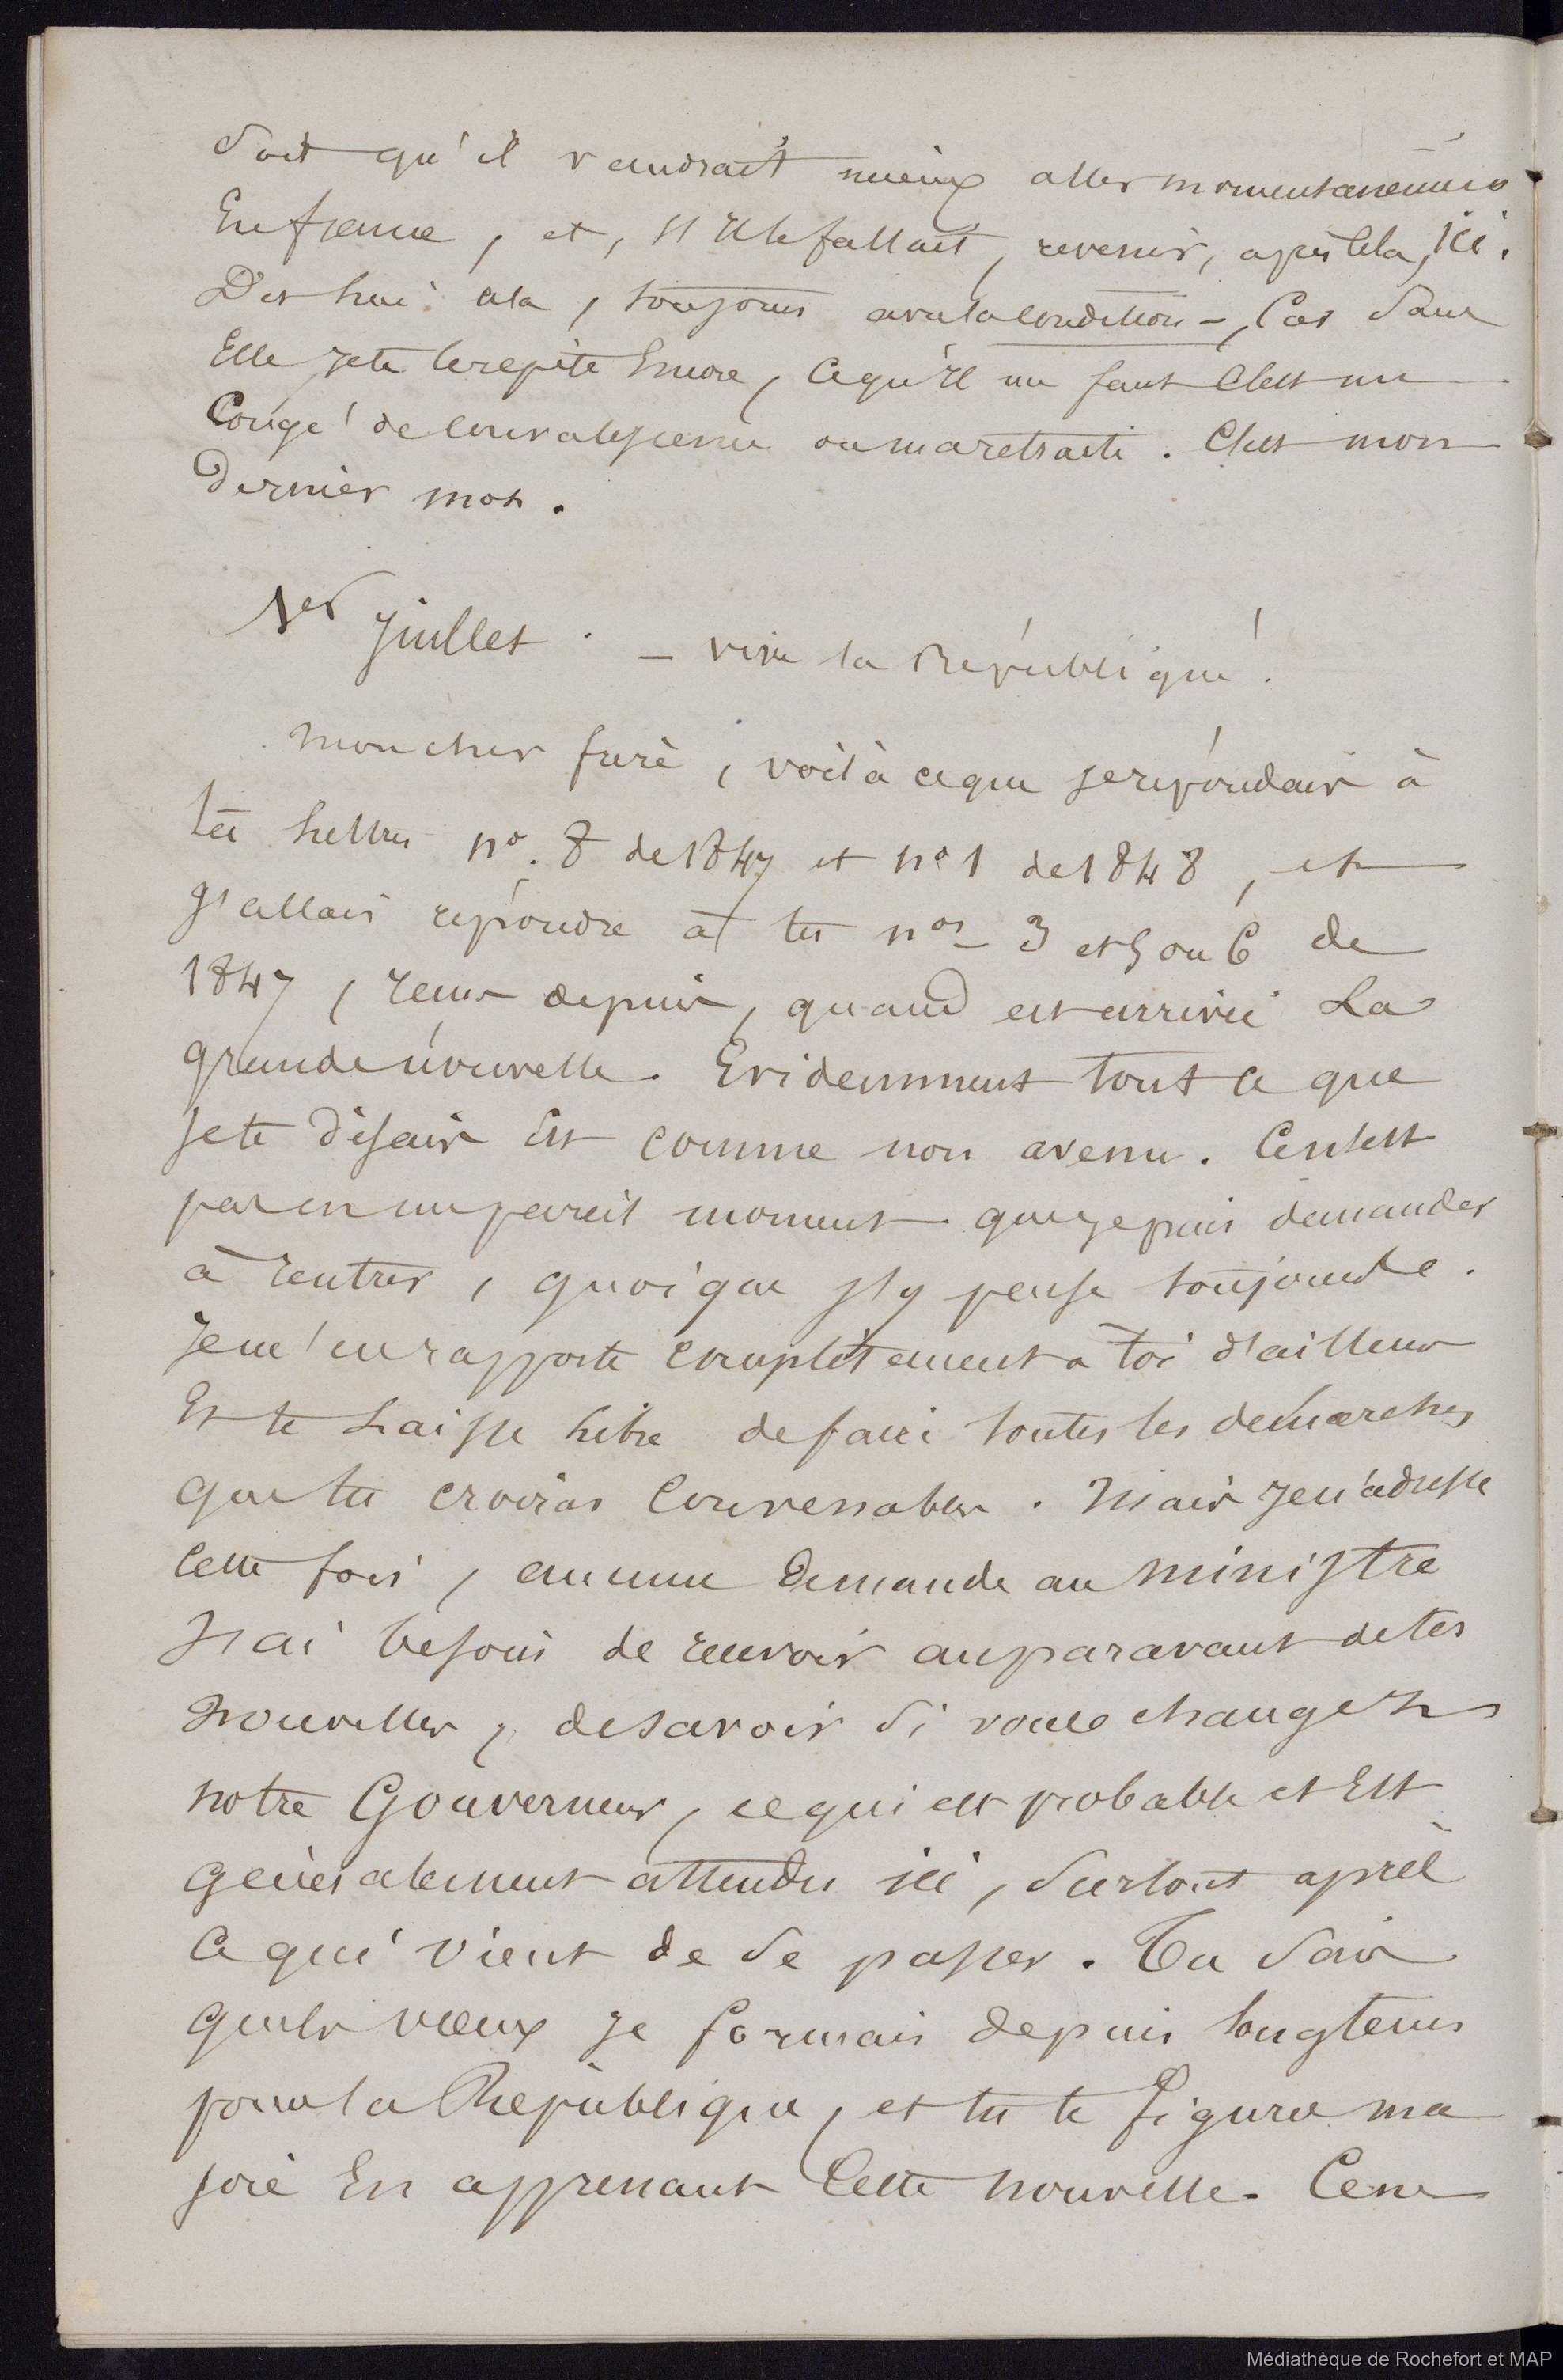 soit qu'il vaudrait mieux aller momentanément
En france, et, s'il le fallait, revenir, après cela, ici.
Dis lui cela, toujours avec la condition –, Car sans
Elle je te le repète Encore, Ce qu'il me faut C'est un
Congé de convalescence ou ma retraite. C'est mon
Dernier mot.
1er Juillet. – vive la République !
mon cher frère, voilà ce que je répondais à
tes lettres n°. 8 de 1847 et n° 1 de 1848, et
J'allais répondre à tes nos – 3 et 5 ou 6 de
1847, recues depuis, quand est arrivée La
grande nouvelle. Evidemment tout ce que
je te disais Est comme non avenu. Ce n'est
pas en un pareil moment que je puis demander
à rentrer, quoique j'y pense toujours.
Je m'en rapporte complètement à toi d'ailleurs
Et te Laisse libre de faire toutes les démarches
que tu croiras Convenables. Mais je n'adresse
Cette fois, aucune Demande au ministre
J'ai besoin de recevoir auparavant de tes
Nouvelles, de savoir si vous changez
notre Gouverneur, ce qui est probable et Est
généralement attendu ici, surtout après
Ce qui vient de se passer. Tu sais
quels vœux je formais depuis longtems
pour la République, et tu te figures ma
joie En apprenant Cette nouvelle. Ce ne
Médiathèque de Rochefort et MAP